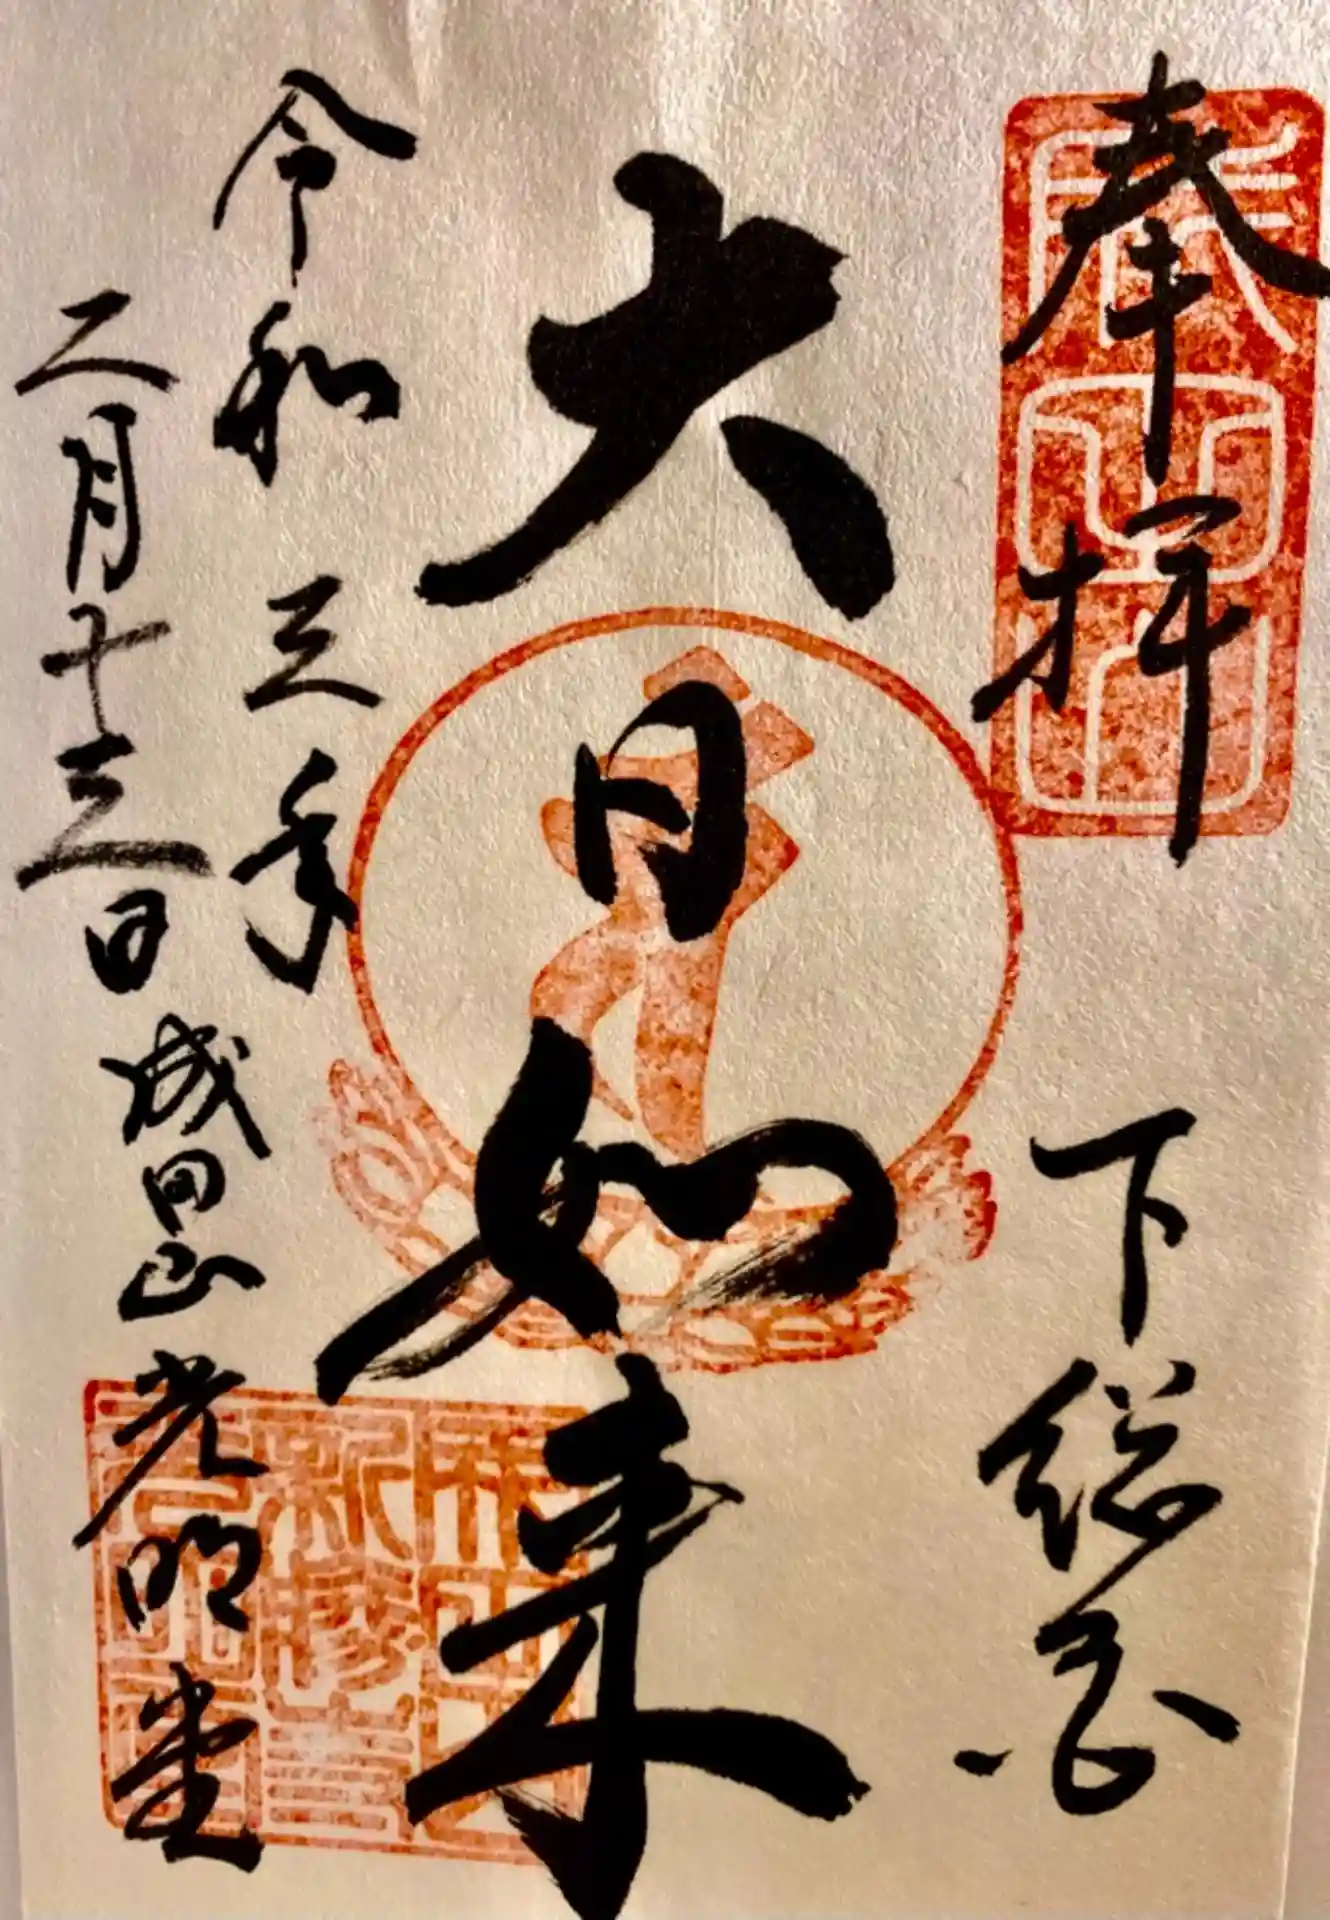 奉拝
下総国
大日如来
令和三年
二月十三日
成田山
光明堂